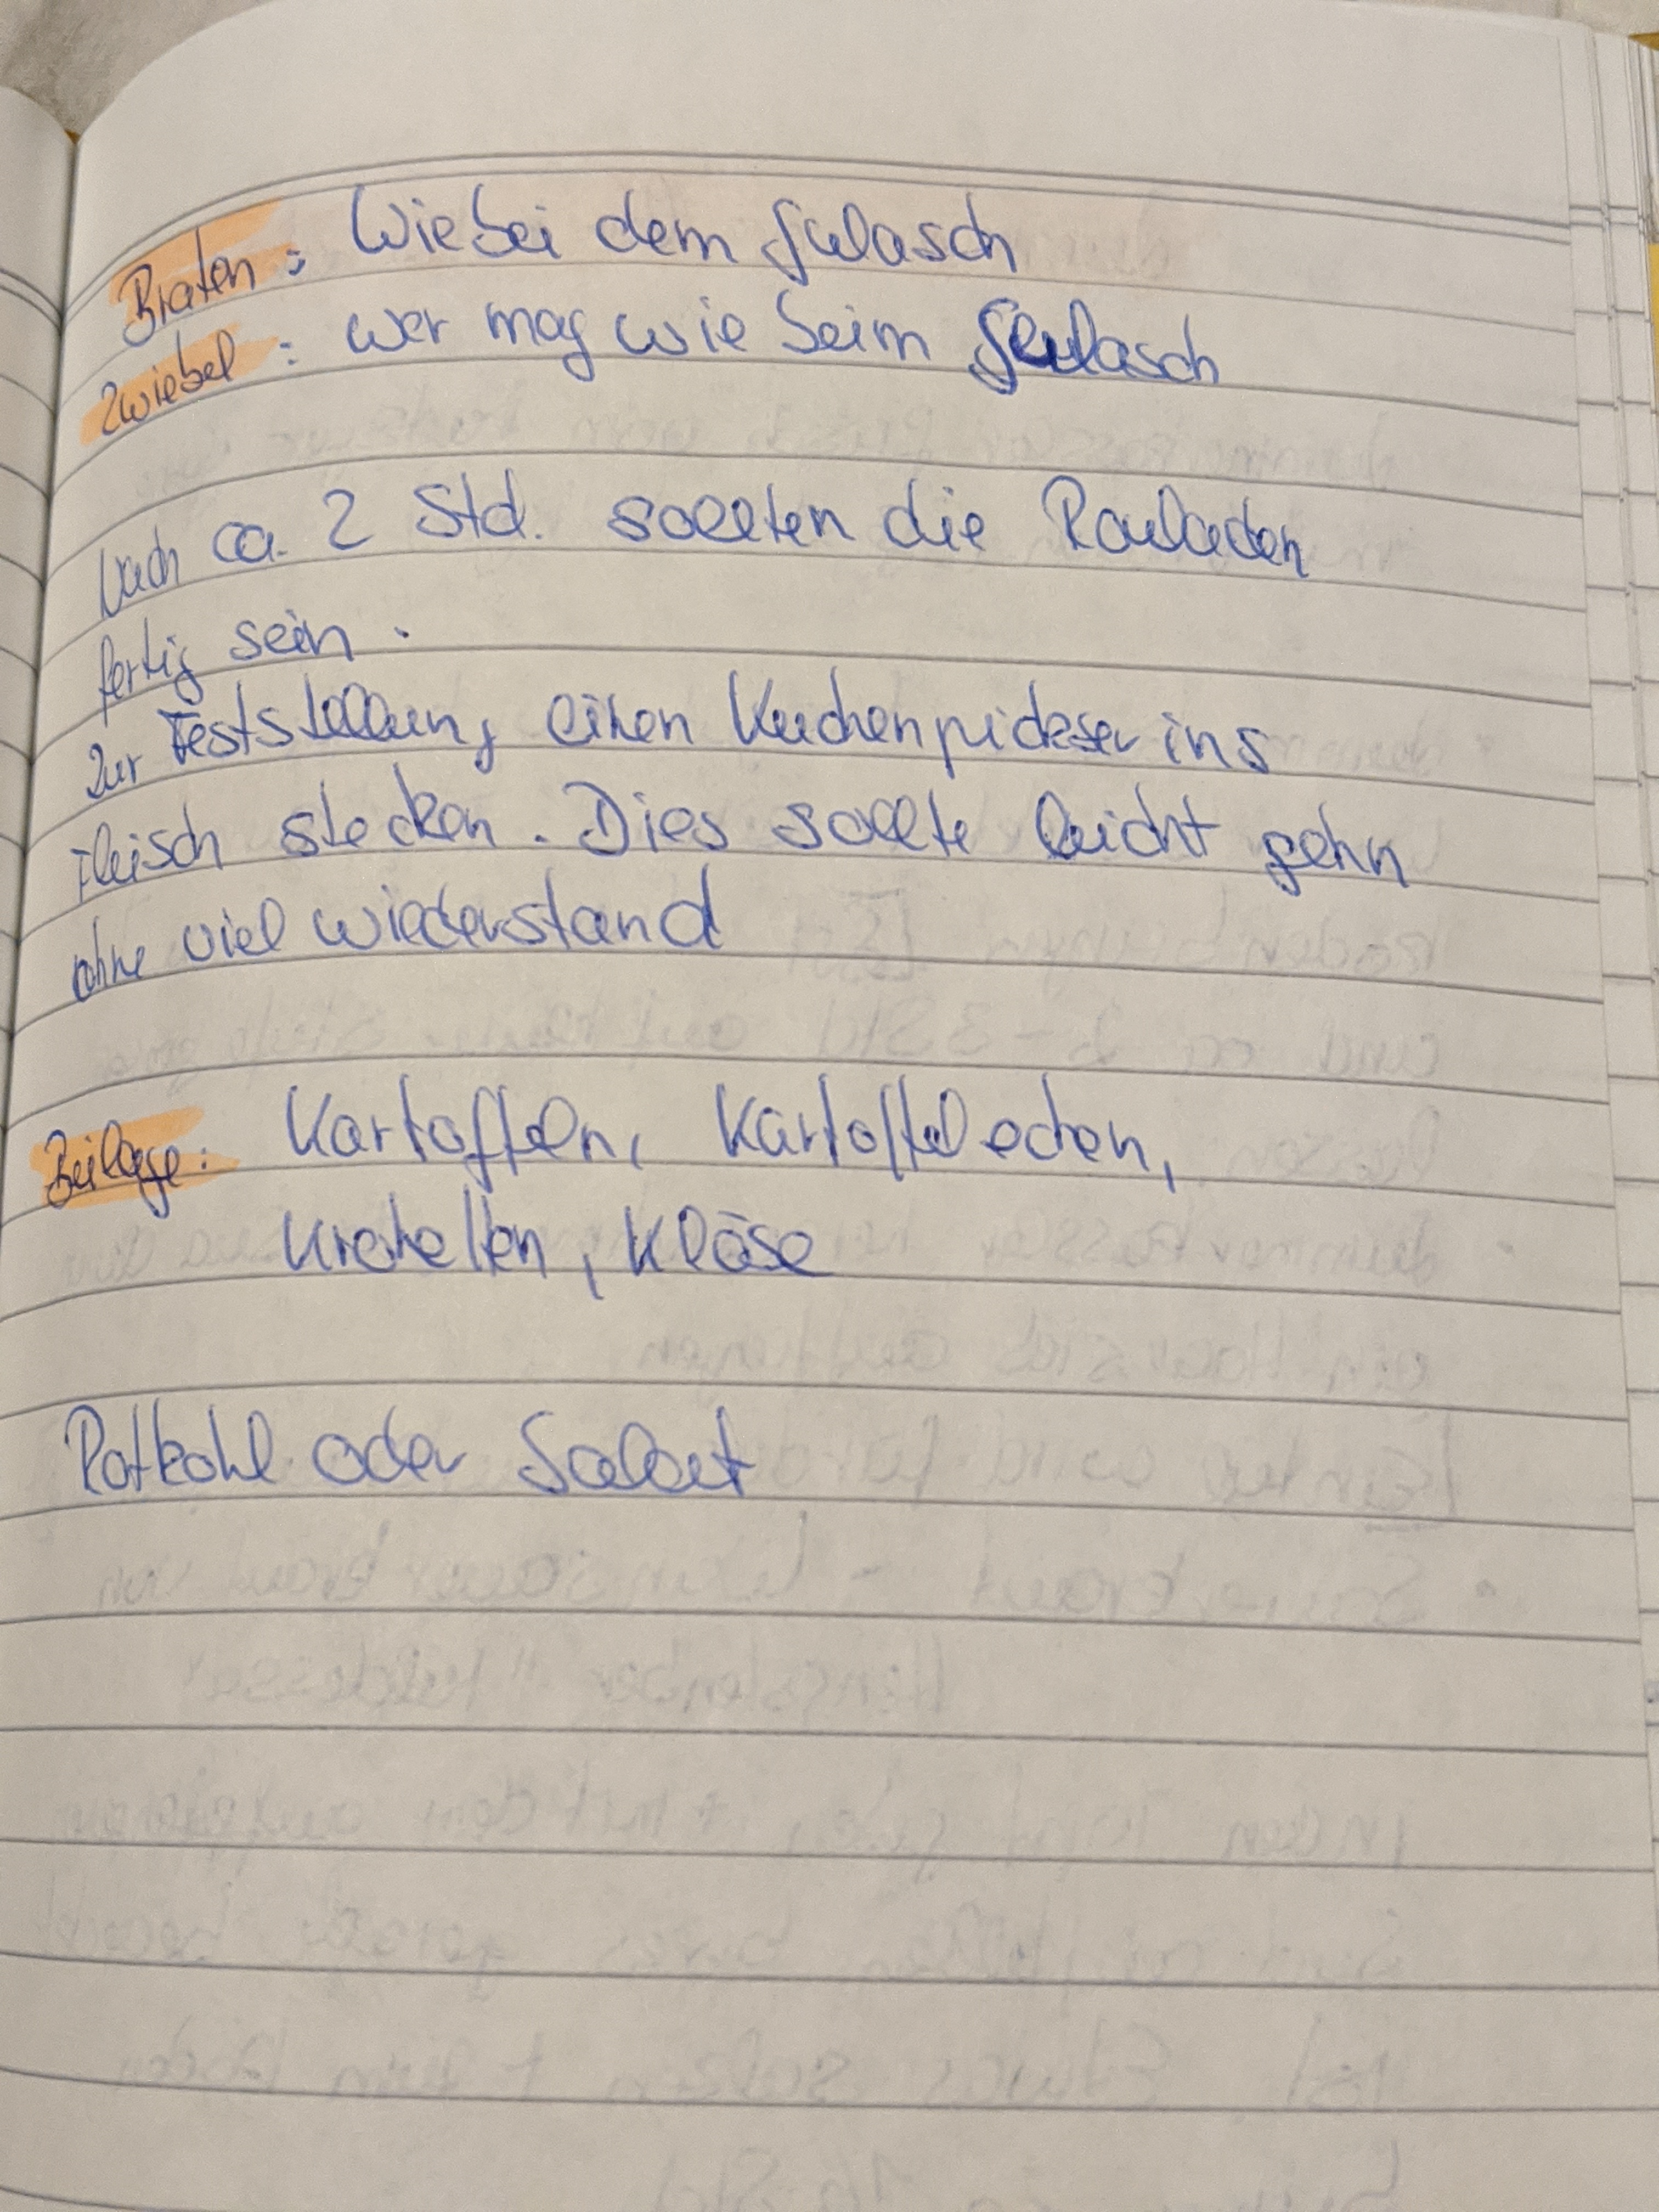 Braten: Wie bei dem Gulasch
Zwiebel: wer mag wie beim Gulasch
Nach ca. 2 Std. sollten die Rouladen
fertig sein.
Zur Feststellung einen Kuchenpickser ins
Fleisch stecken. Dies sollte leicht gehn
ohne viel wiederstand
Beilage: Kartoffeln, Kartoffelecken,
Kroketten, Klöse
Rotkohl oder Salat